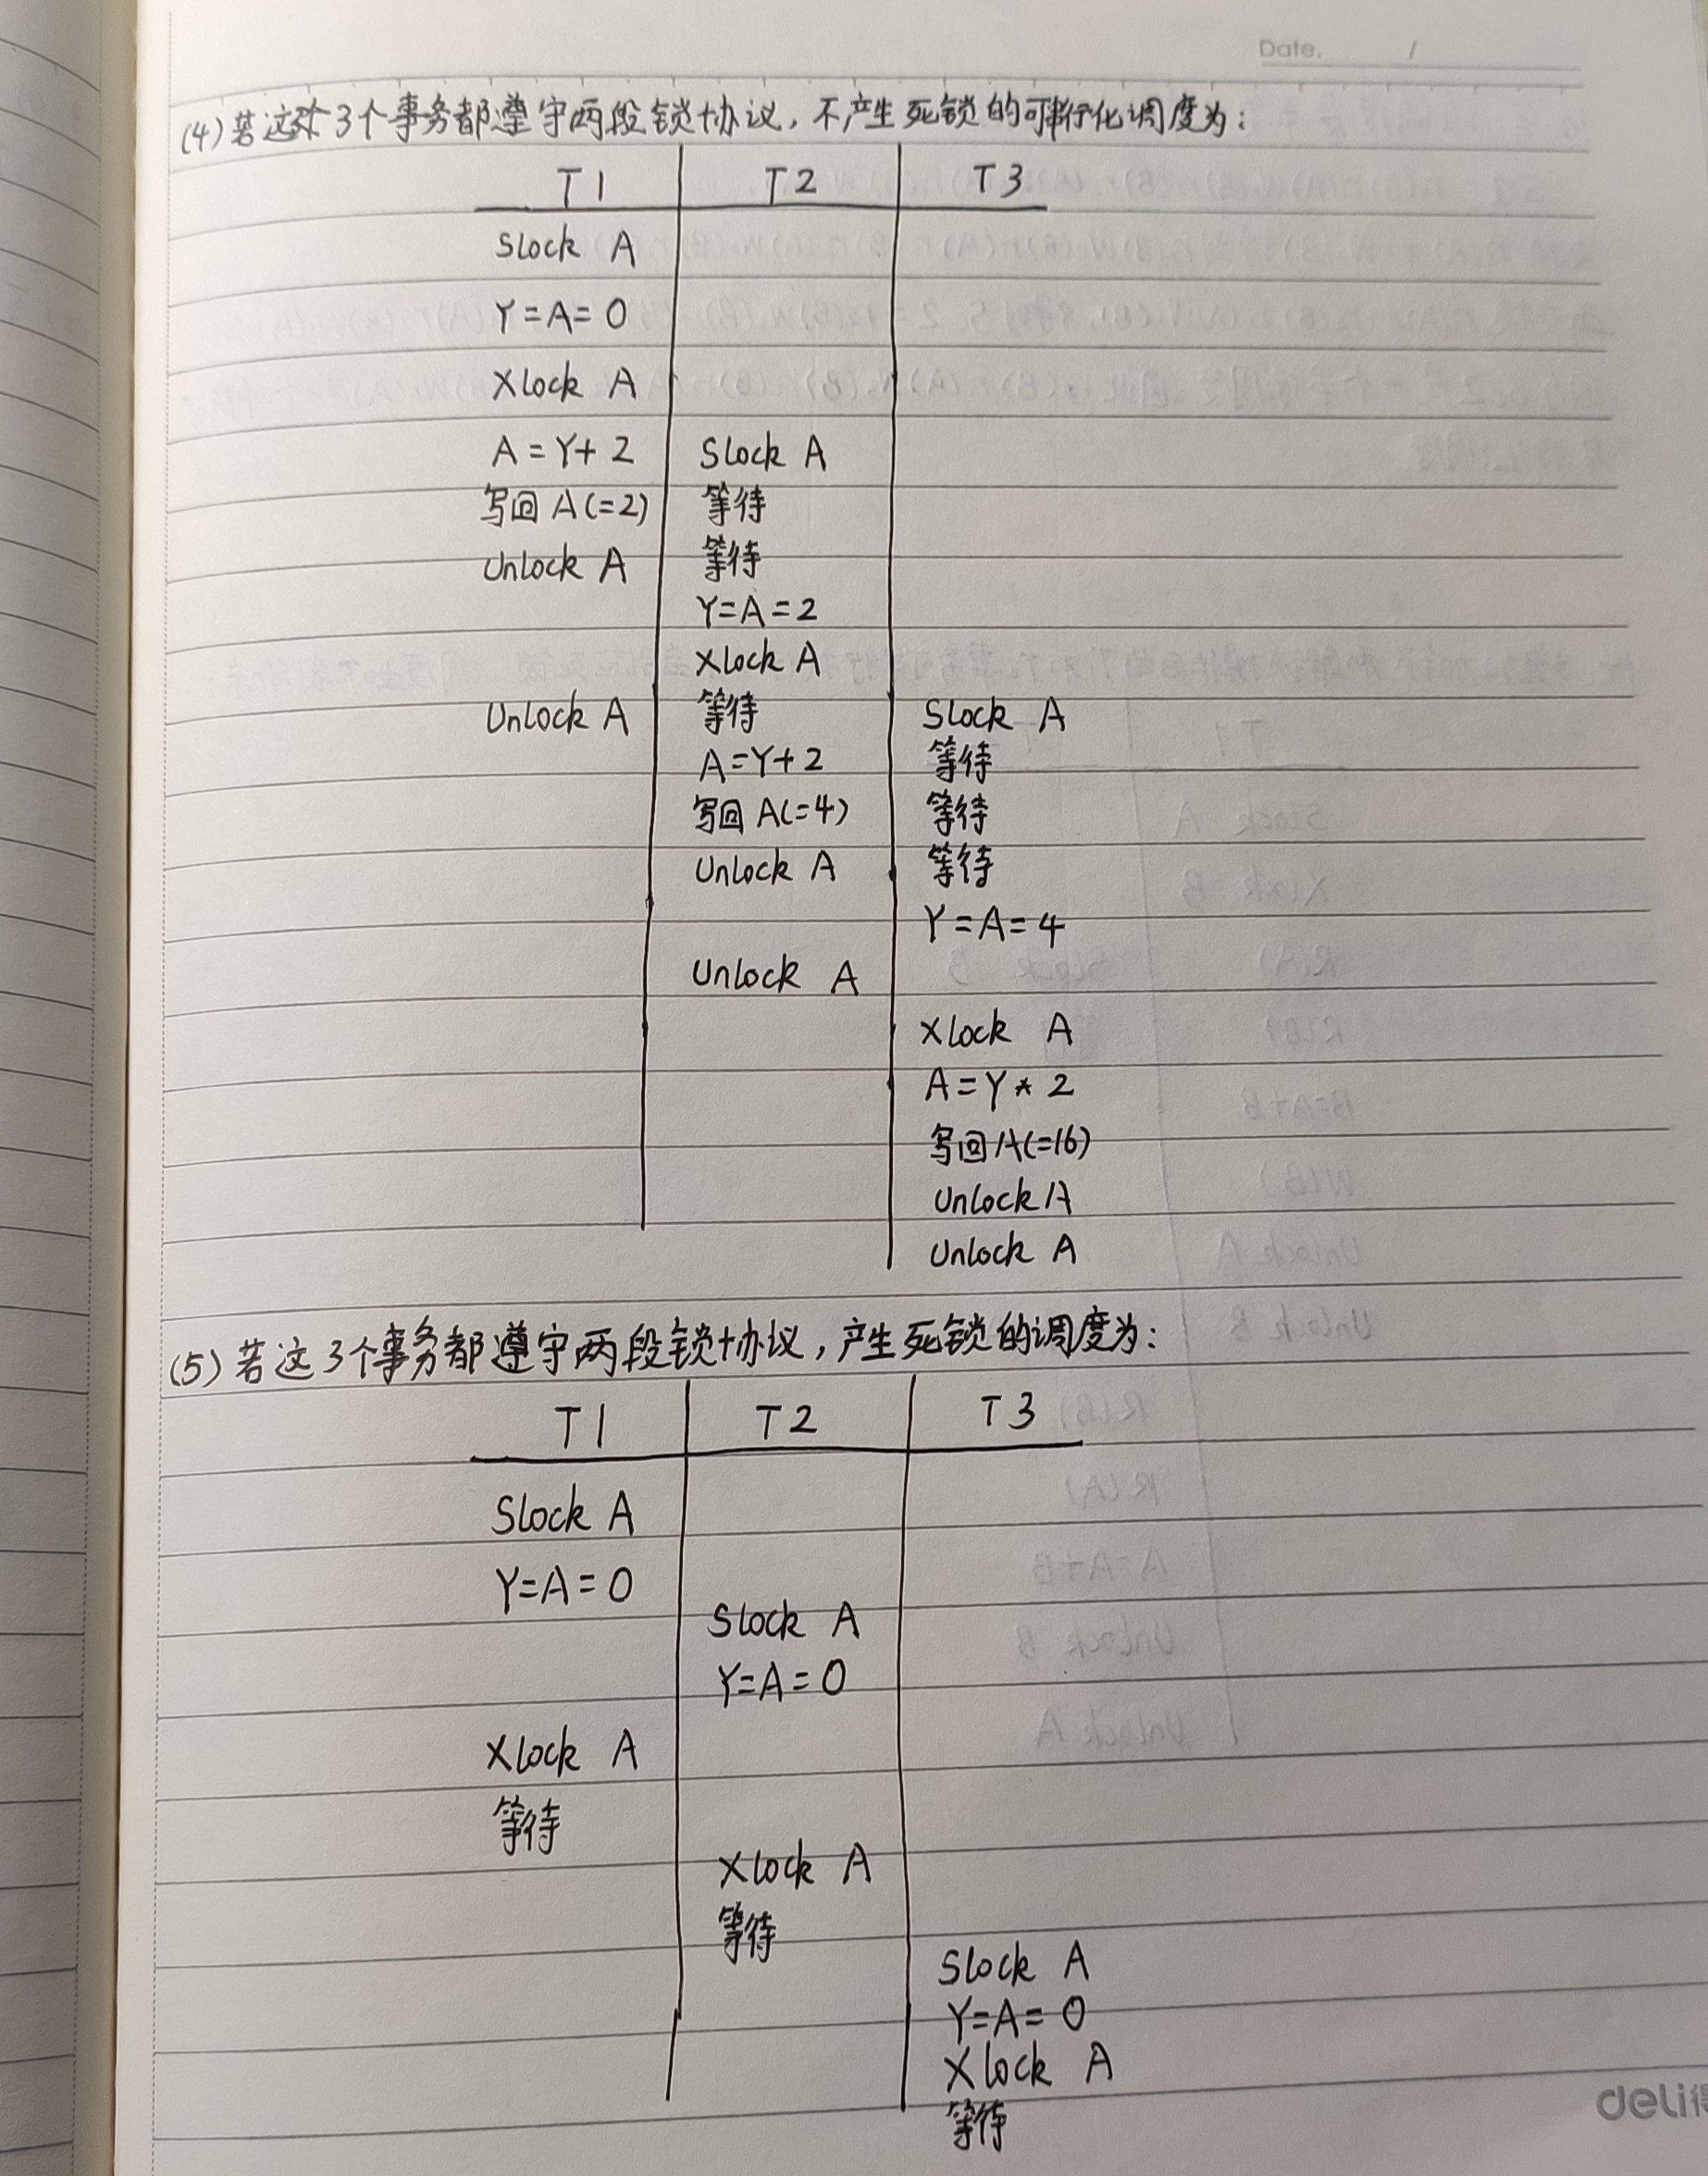 Date. /
(4) 若这个3个事务都遵守两段锁协议，不产生死锁的可串行化调度为：
T1 T2 T3
Slock A
Y=A=0
Xlock A
A=Y+2 Slock A
写回A(=2) 等待
Unlock A 等待
Y=A=2
Xlock A
Unlock A 等待 Slock A
A=Y+2 等待
写回A(=4) 等待
Unlock A 等待
Y=A=4
Unlock A
Xlock A
A=Y*2
写回A(=16)
Unlock A
Unlock A
(5) 若这3个事务都遵守两段锁协议，产生死锁的调度为：
T1 T2 T3
Slock A
Y=A=0
Slock A
Y=A=0
Xlock A
等待
Xlock A
等待
Slock A
Y=A=0
Xlock A
等待
deli得